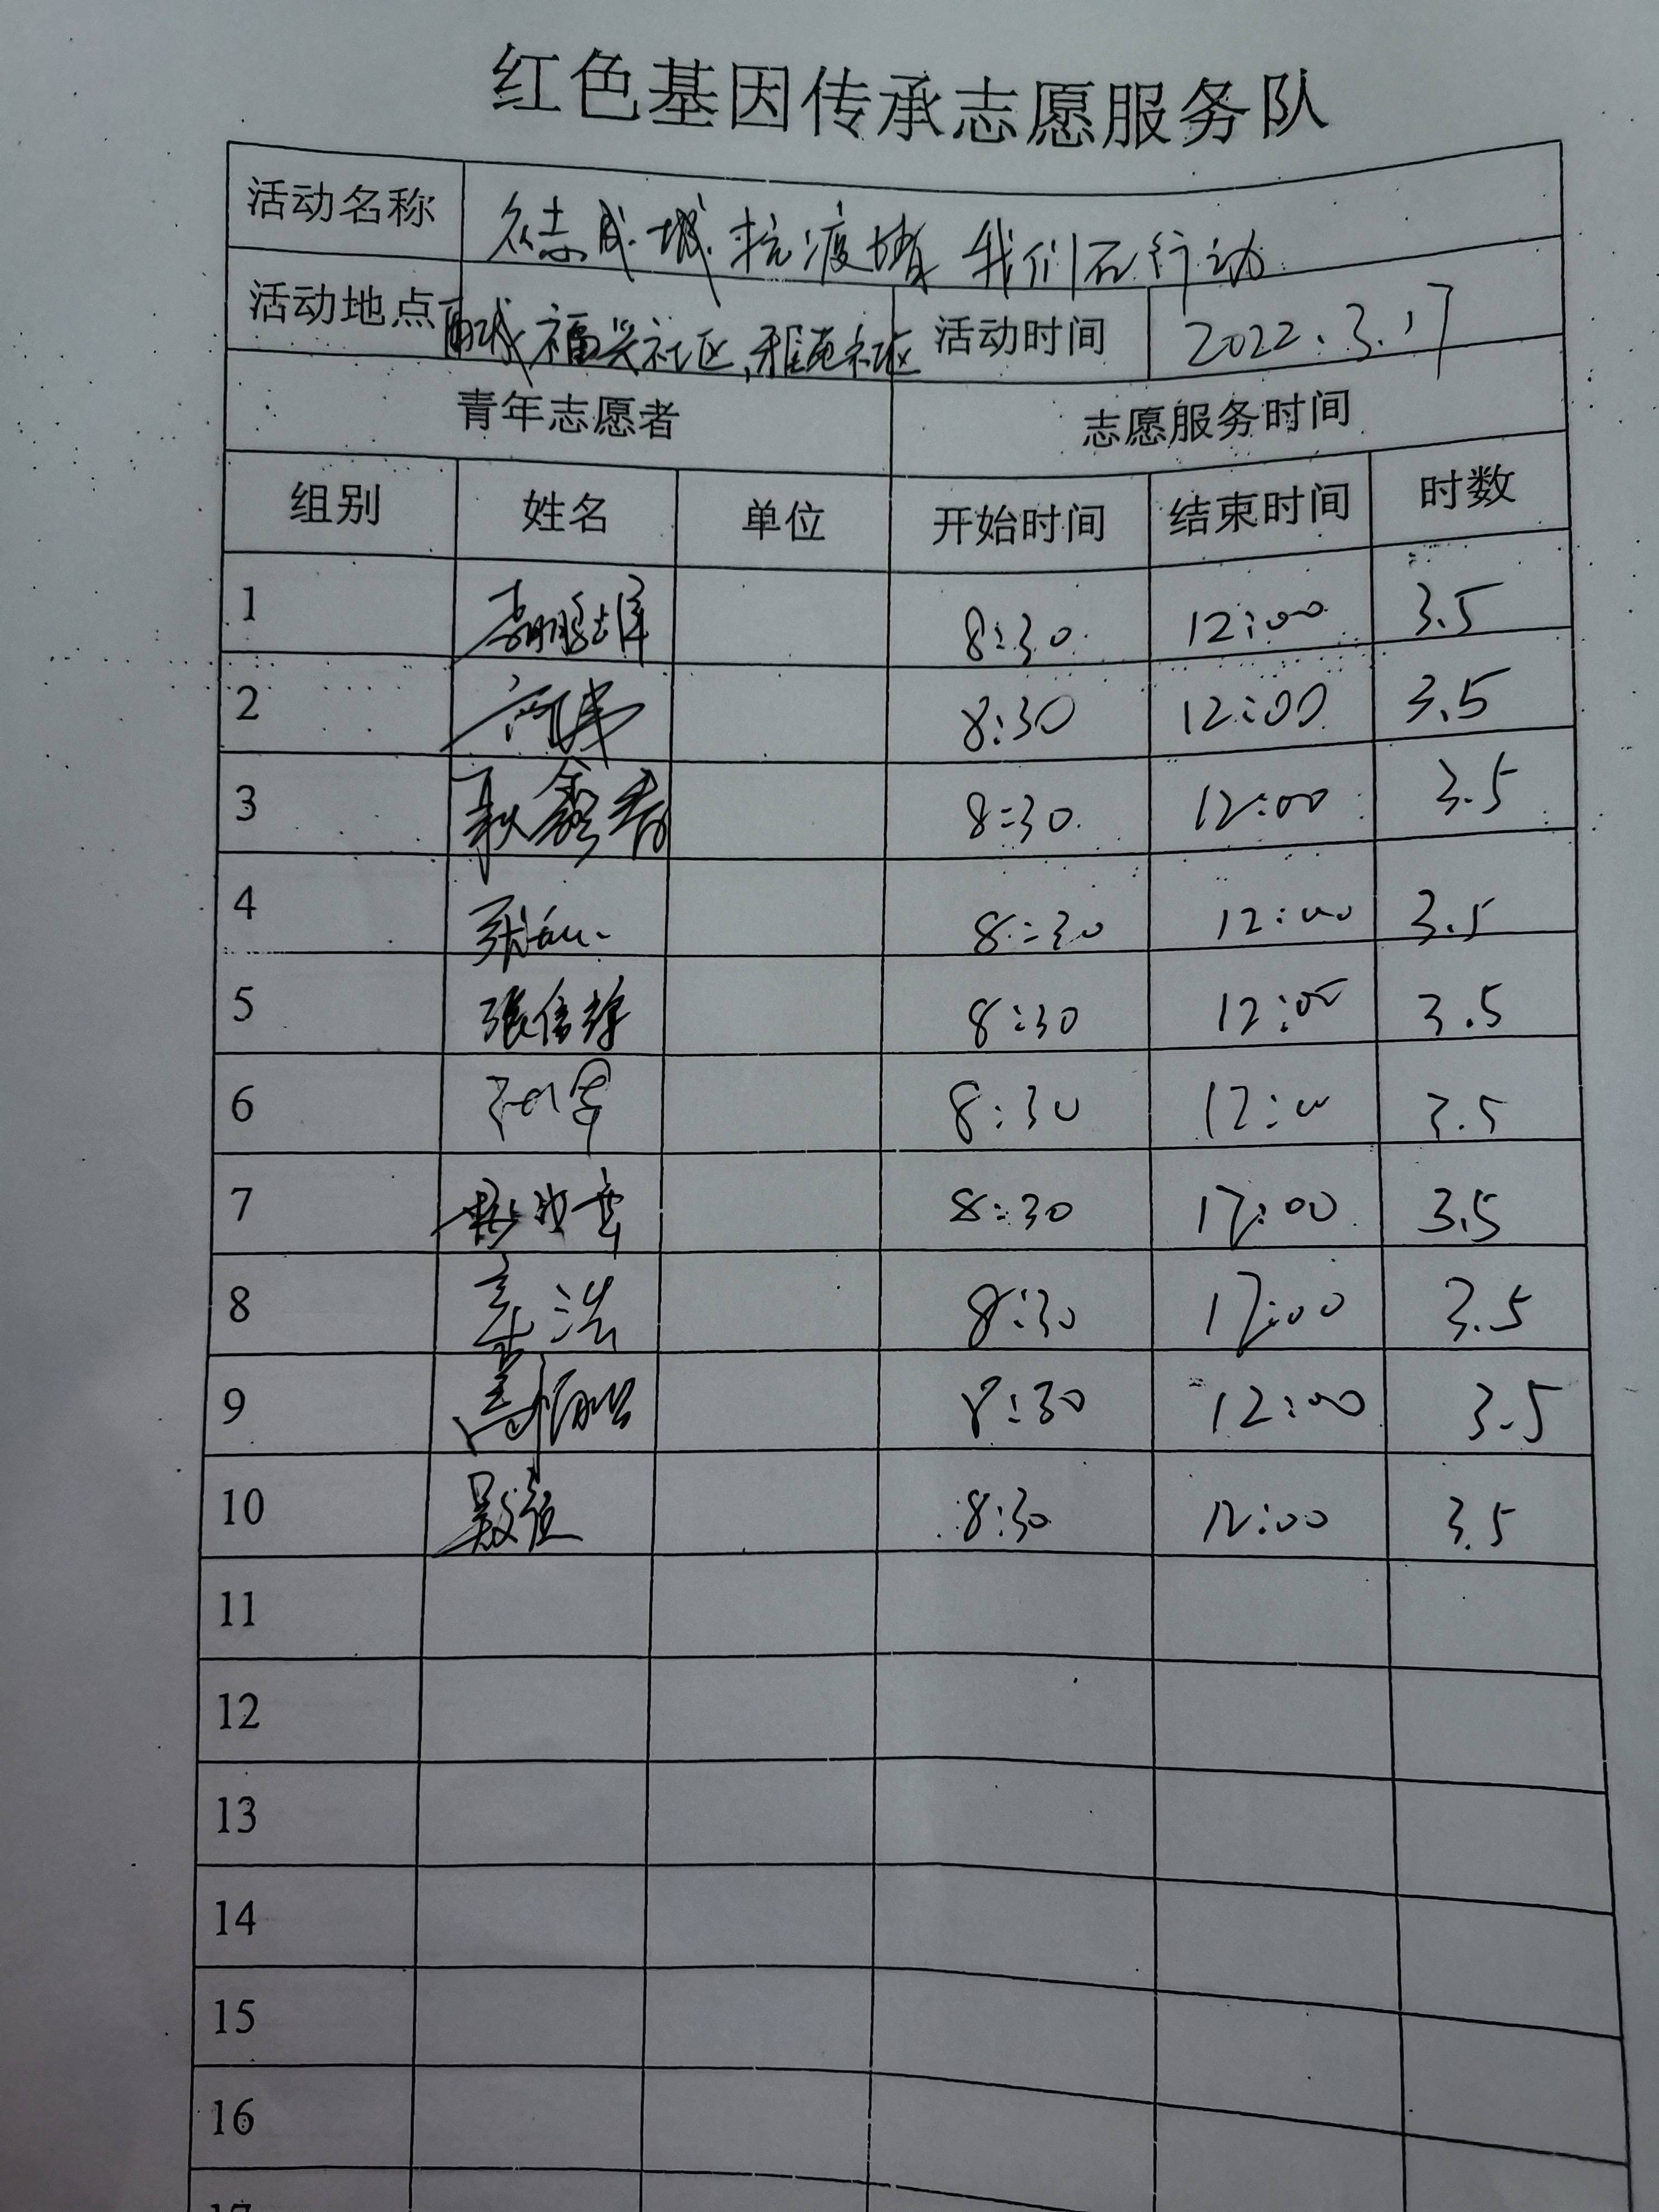 红色基因传承志愿服务队
活动名称 众志成城 抗疫情 我们在行动
活动地点 福兴社区、雅苑社区 活动时间 2022.3.17
青年志愿者 志愿服务时间
组别 姓名 单位 开始时间 结束时间 时数
1 8:30 12:00 3.5
2 8:30 12:00 3.5
3 8:30 12:00 3.5
4 8:30 12:00 3.5
5 8:30 12:00 3.5
6 8:30 12:00 3.5
7 8:30 12:00 3.5
8 浩 8:30 12:00 3.5
9 8:30 12:00 3.5
10 8:30 12:00 3.5
11
12
13
14
15
16
17